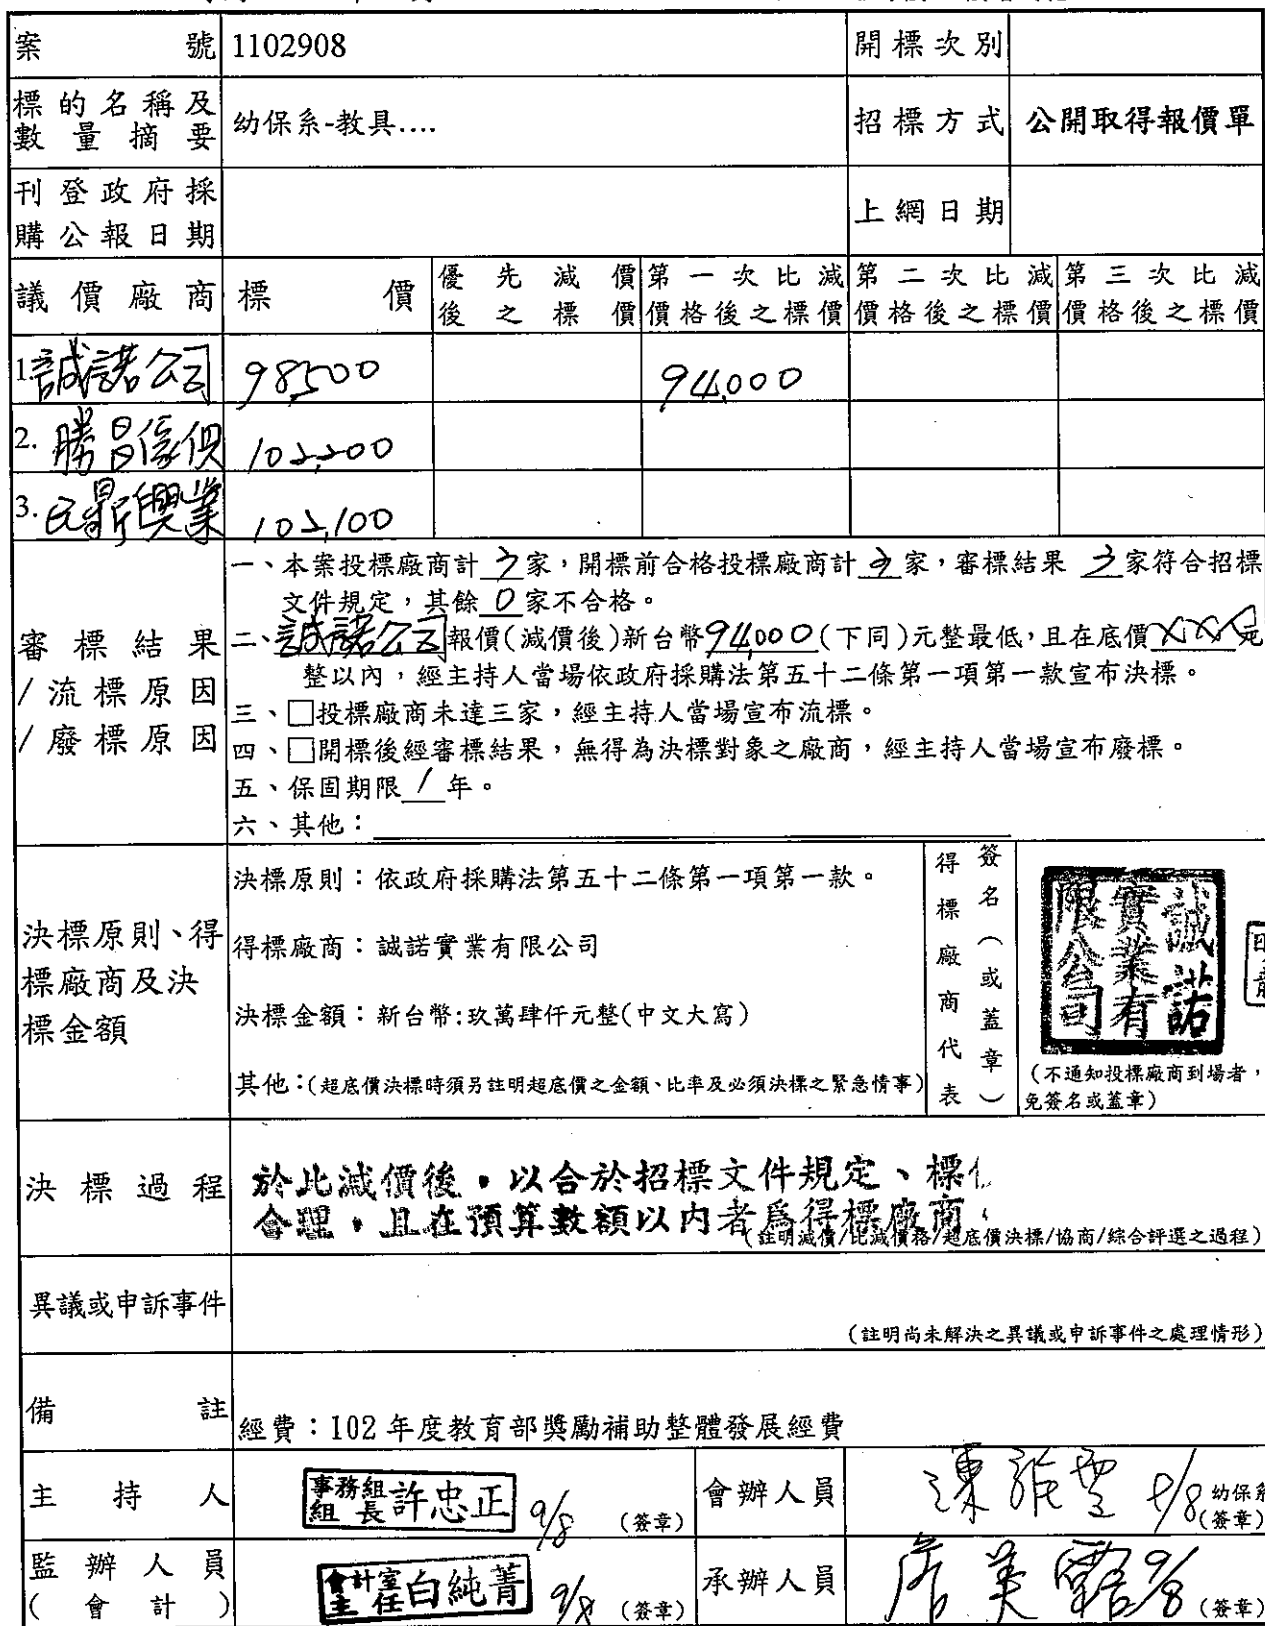 案號 1102908 開標次別
標的名稱及數量摘要 幼保系-教具.... 招標方式 公開取得報價單
刊登政府採購公報日期 上網日期
議價廠商 標價 優先減價後之標價 第一次比減價格後之標價 第二次比減價格後之標價 第三次比減價格後之標價
1.誠諾公司 98,500 94,000
2.勝昌傢俱 102,200
3. 興業 102,100
審標結果/流標原因/廢標原因
一、本案投標廠商計3家,開標前合格投標廠商計3家,審標結果 3家符合招標
文件規定,其餘0家不合格。
二、誠諾公司報價(減價後)新台幣94,000(下同)元整最低,且在底價XXX元
整以內,經主持人當場依政府採購法第五十二條第一項第一款宣布決標。
三、□投標廠商未達三家,經主持人當場宣布流標。
四、□開標後經審標結果,無得為決標對象之廠商,經主持人當場宣布廢標。
五、保固期限1年。
六、其他:
決標原則、得標廠商及決標金額
決標原則:依政府採購法第五十二條第一項第一款。
得標廠商:誠諾實業有限公司
決標金額:新台幣:玖萬肆仟元整(中文大寫)
其他:(超底價決標時須另註明超底價之金額、比率及必須決標之緊急情事)
得標廠商代表
簽名(或蓋章)
誠諾實業有限公司
(不通知投標廠商到場者,
免簽名或蓋章)
決標過程
於比減價後,以合於招標文件規定、標
合理,且在預算數額以內者為得標廠商
(註明減價/比減價格/超底價決標/協商/綜合評選之過程)
異議或申訴事件
(註明尚未解決之異議或申訴事件之處理情形)
備註 經費:102年度教育部獎勵補助整體發展經費
主持人 事務組組長許忠正 9/8 (簽章) 會辦人員 9/8 幼保系 (簽章)
監辦人員(會計) 會計室主任白純菁 9/8 (簽章) 承辦人員 9/8 (簽章)